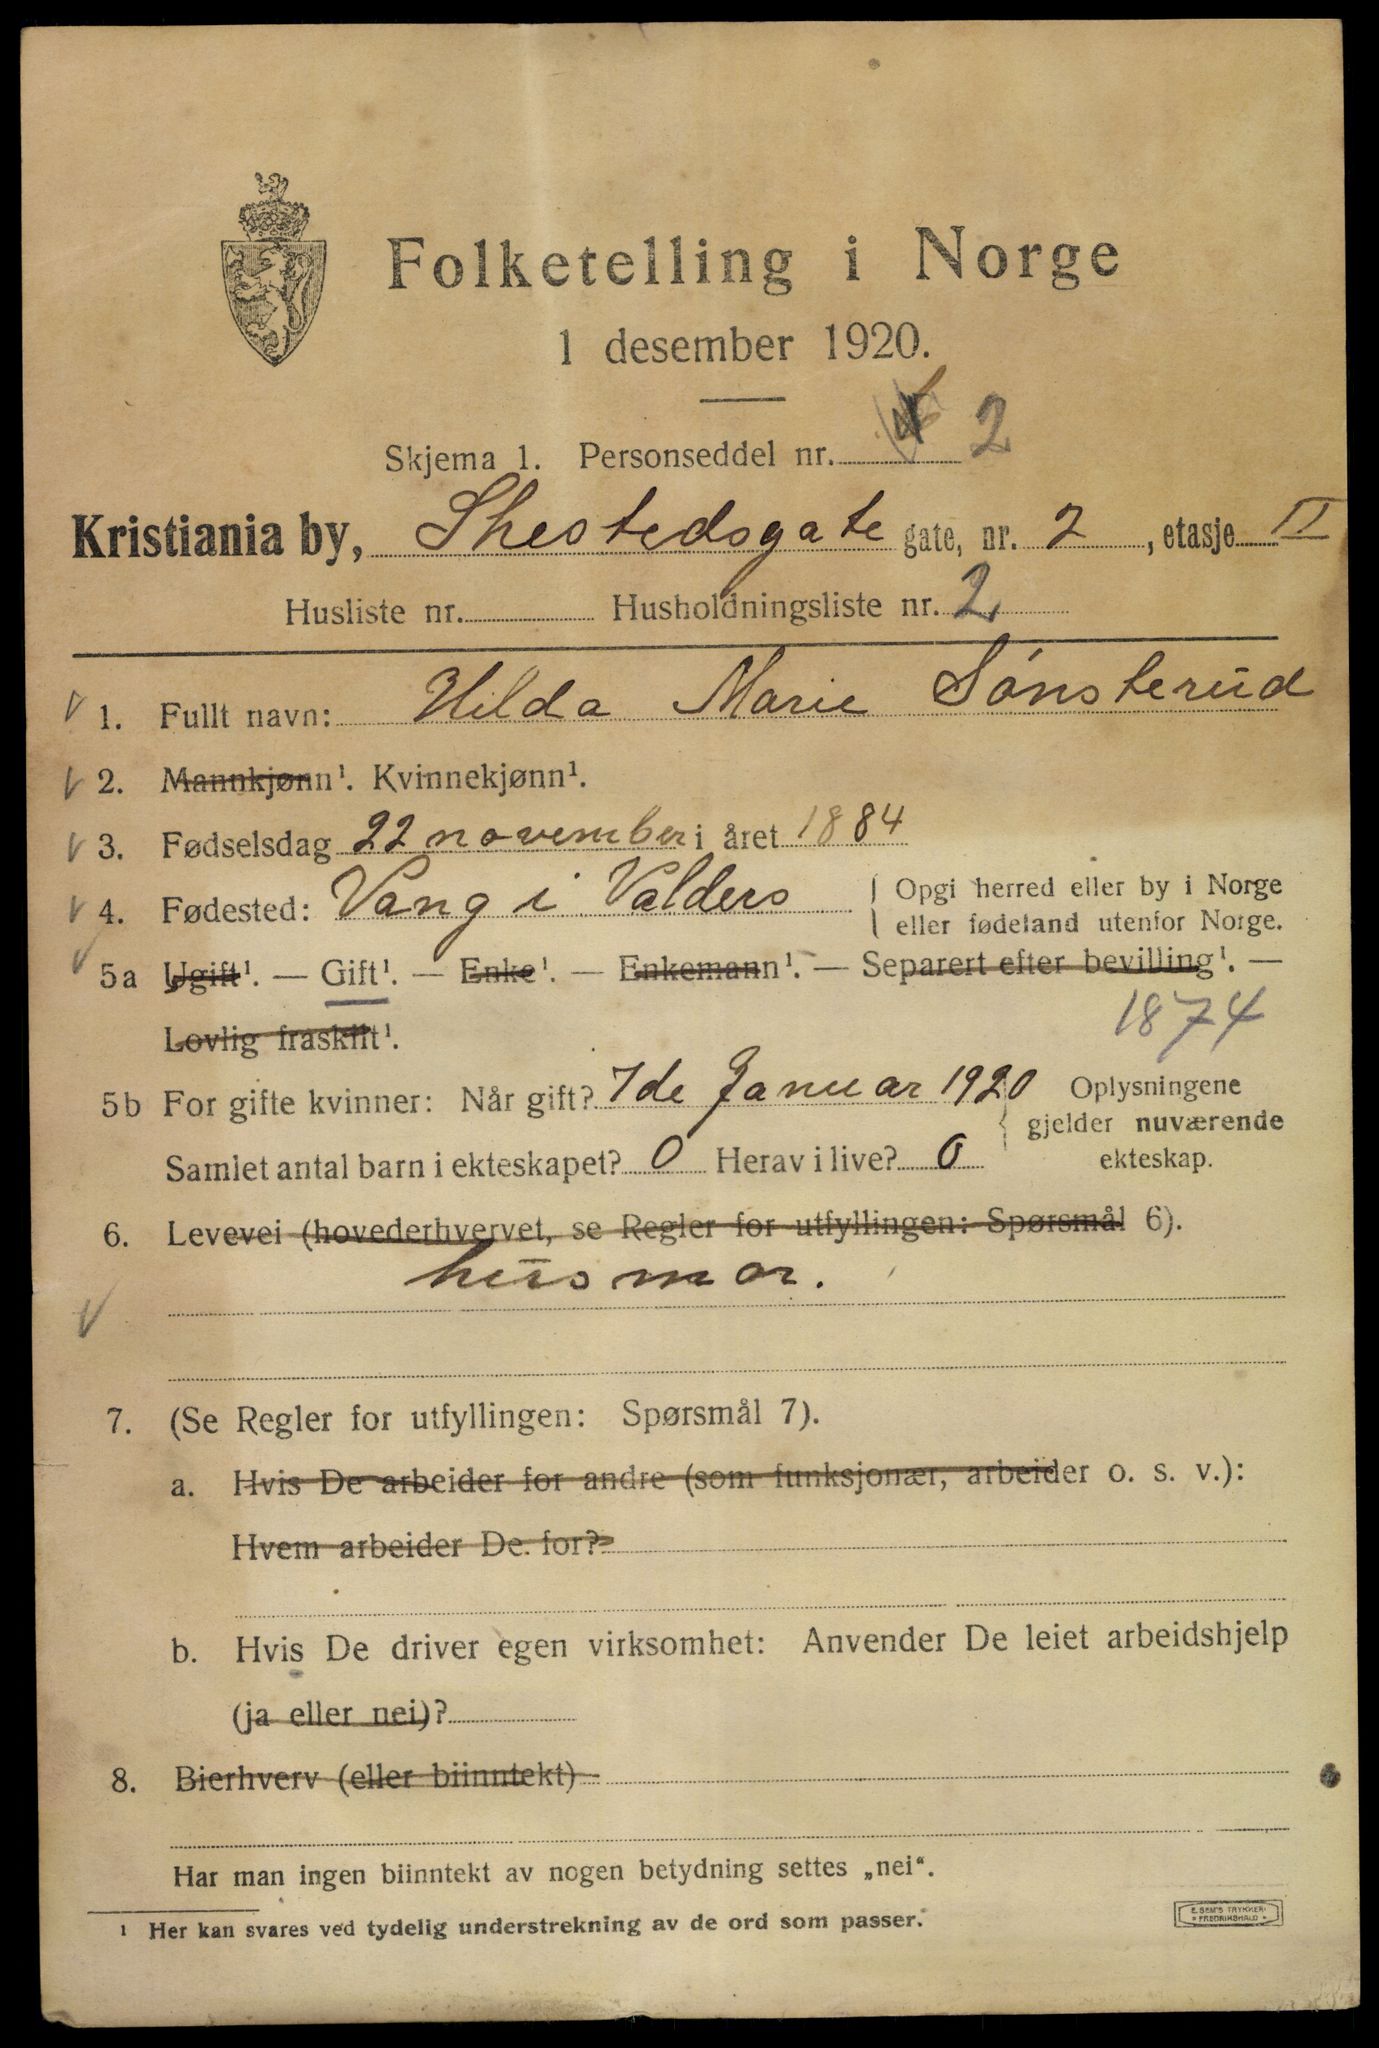 Folketelling i Norge
1 desember 1920.
Skjema 1. Personseddel nr. 2
Kristiania by, Shestedsgate gate, nr. 2, etasje II
Husliste nr. Husholdningsliste nr. 2
1. Fullt navn: Hilda Marie Sönsterud
2. Mannkjønn¹. Kvinnekjønn¹.
3. Fødselsdag 22 november i året 1884
4. Fødested: Vang i Valders { Opgi herred eller by i Norge
eller fødeland utenfor Norge.
5a Ugift¹. — Gift¹. — Enke¹. — Enkemann¹. — Separert efter bevilling¹. —
Lovlig fraskilt¹.
1874
5b For gifte kvinner: Når gift? 7de Januar 1920 { Oplysningene
gjelder nuværende
Samlet antal barn i ekteskapet? 0 Herav i live? 0 ekteskap.
6. Levevei (hovederhvervet, se Regler for utfyllingen: Spørsmål 6).
husmor.
7. (Se Regler for utfyllingen: Spørsmål 7).
a. Hvis De arbeider for andre (som funksjonær, arbeider o. s. v.):
Hvem arbeider De for?
b. Hvis De driver egen virksomhet: Anvender De leiet arbeidshjelp
(ja eller nei)?
8. Bierhverv (eller biinntekt)
Har man ingen biinntekt av nogen betydning settes „nei“.
¹ Her kan svares ved tydelig understrekning av de ord som passer.
E. SEM'S TRYKKERI
FREDRIKSHALD